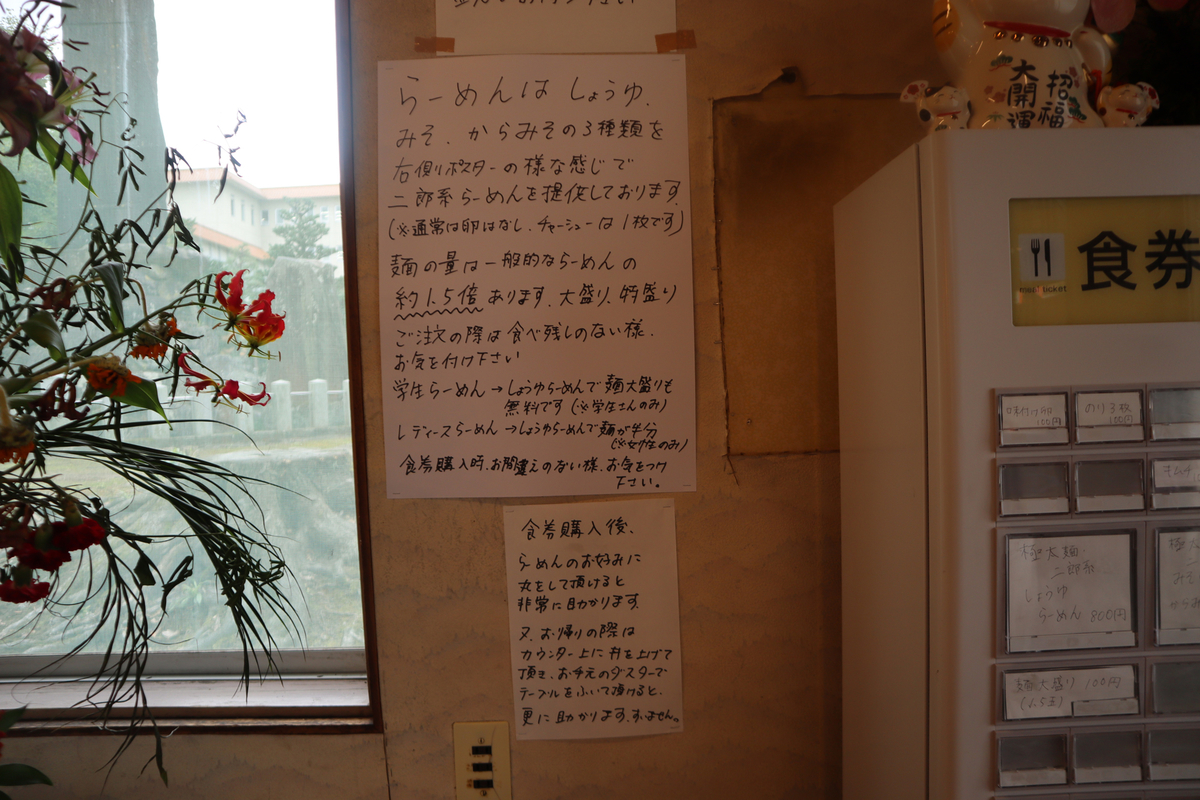 らーめんは しょうゆ、
みそ、からみその3種類を
右側ポスターの様な感じで
二郎系らーめんを提供しております。
(※通常は卵はなし、チャーシューは1枚です)
麺の量は一般的ならーめんの
約1.5倍あります。大盛り、特盛り
ご注文の際は食べ残しのない様、
お気を付け下さい
学生らーめん→しょうゆらーめんで麺大盛りも
無料です(※学生さんのみ)
レディースらーめん→しょうゆらーめんで麺が半分
(※女性のみ)
食券購入時、お間違えのない様、お気をつけ
下さい。
食券購入後、
らーめんのお好みに
丸をして頂けると
非常に助かります。
又、お帰りの際は
カウンター上に丼を上げて
頂き、お手元のダスターで
テーブルをふいて頂けると、
更に助かります。すいません。
招福
大開運
食券
meal ticket
味付け卵
100円
のり3枚
100円
キムチ
極太麺
二郎系
しょうゆ
らーめん 800円
麺大盛り 100円
(1.5玉)